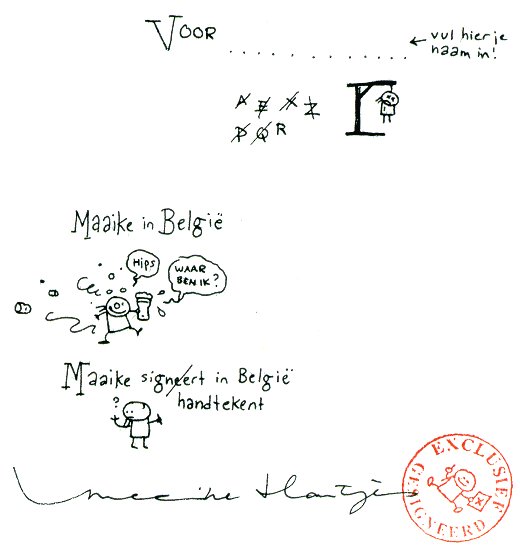 Voor ..............
← vul hier je
naam in!
A E X Z
P Q R
Maaike in België
Hips
Waar
ben ik?
Maaike signeert in België
handtekent
?
Maaike Hartjes
EXCLUSIEF
GESIGNEERD